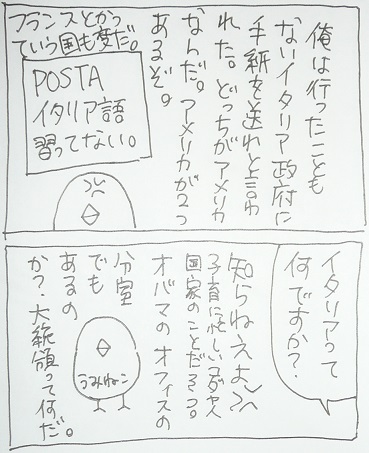 俺は行ったことも
ないイタリア政府に
手紙を送れと言わ
れた。どっちがアメリカ
なんだ。アメリカが2つ
あるぞ。
フランスとかっ
ていう国も変だ。
POSTA
イタリア語
習ってない。
イタリアって
何ですか?
知らねえよ
子育に忙しいユダヤ人
国家のことだろっ。
オバマのオフィスの
分室
でも
あるの
か?大統領って何だ。
うみねこ